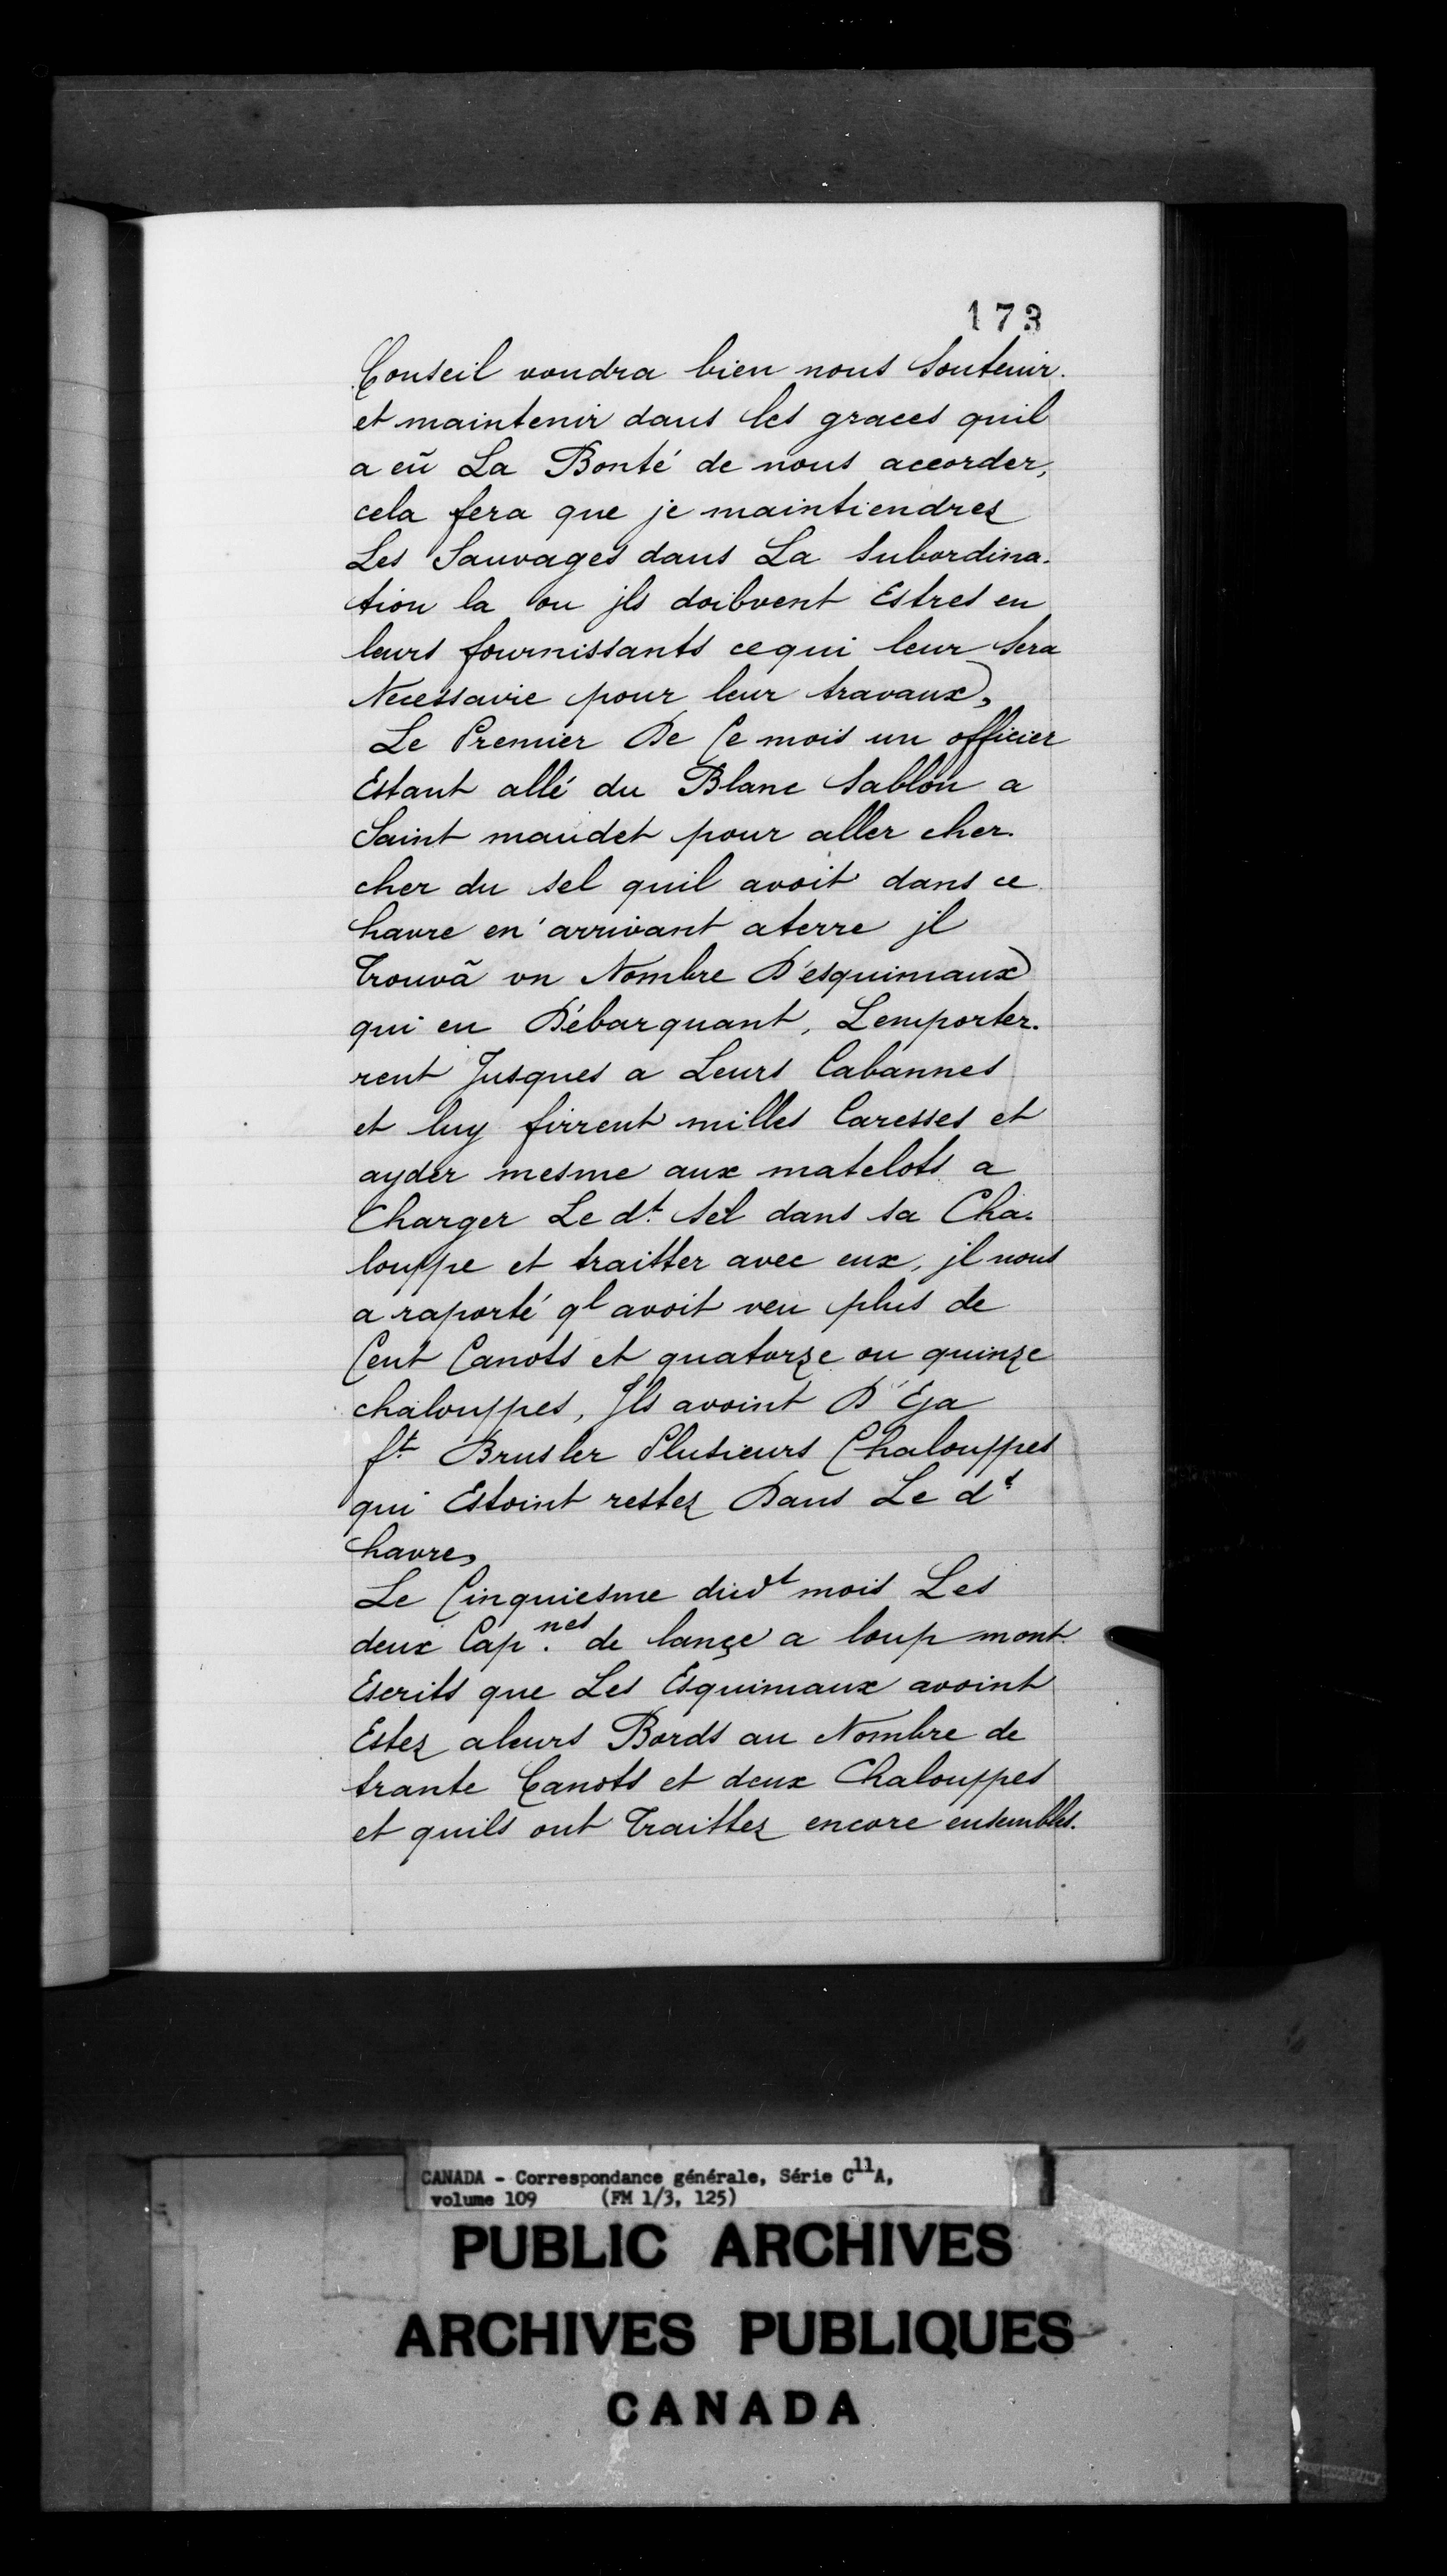 173
Conseil voudra bien nous Soutenir.
et maintenir dans les graces quil
a eü La Bonté de nous accorder,
cela fera que je maintiendrez
Les Sauvages dans La Subordina-
tion la ou jls doibvent Estres en
leurs fournissants cequi leur Sera
Necessaire pour leur travaux,
Le Premier De Ce mois un officier
Estant allé du Blanc Sablon a
Saint maudet pour aller cher-
cher du sel quil avoit dans ce
havre en arrivant aterre jl
Trouvã un Nombre D'esquimaux
qui en Débarquant, Lemporter-
rent Jusques a Leurs Cabannes
et luy firrent milles Caresses et
ayder mesme aux matelots a
Charger Le dt. sel dans sa Cha-
louppe et traitter avec eux, jl nous
a raporté ql avoit veu plus de
Cent Canots et quatorze ou quinze
chalouppes, Jls avoint D'Eja
ft Brusler Plusieurs Chalouppes
qui Estoint restez Dans Le dt
havre,
Le Cinquiesme dudt mois Les
deux Cap.nes de lançe a loup mont
Escrits que Les Esquimaux avoint
Estez aleurs Bords au Nombre de
trante Canots et deux Chalouppes
et quils ont Traittez encore ensembles.
CANADA - Correspondance générale, Série C11A,
volume 109 (FM 1/3, 125)
PUBLIC ARCHIVES
ARCHIVES PUBLIQUES
CANADA